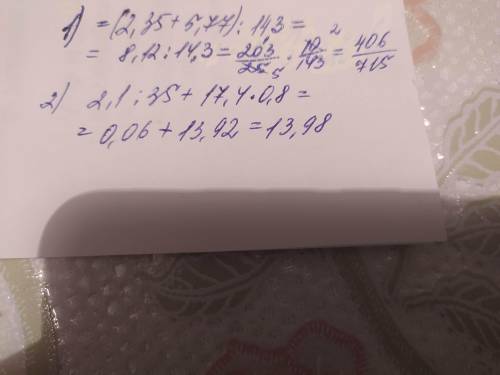 1) =(2,35+5,77):143=
= 8,12:14,3= 203/25 5 · 10/143 2 = 406/715
2) 2,1:35+17,4·0,8=
=0,06+13,92=13,98